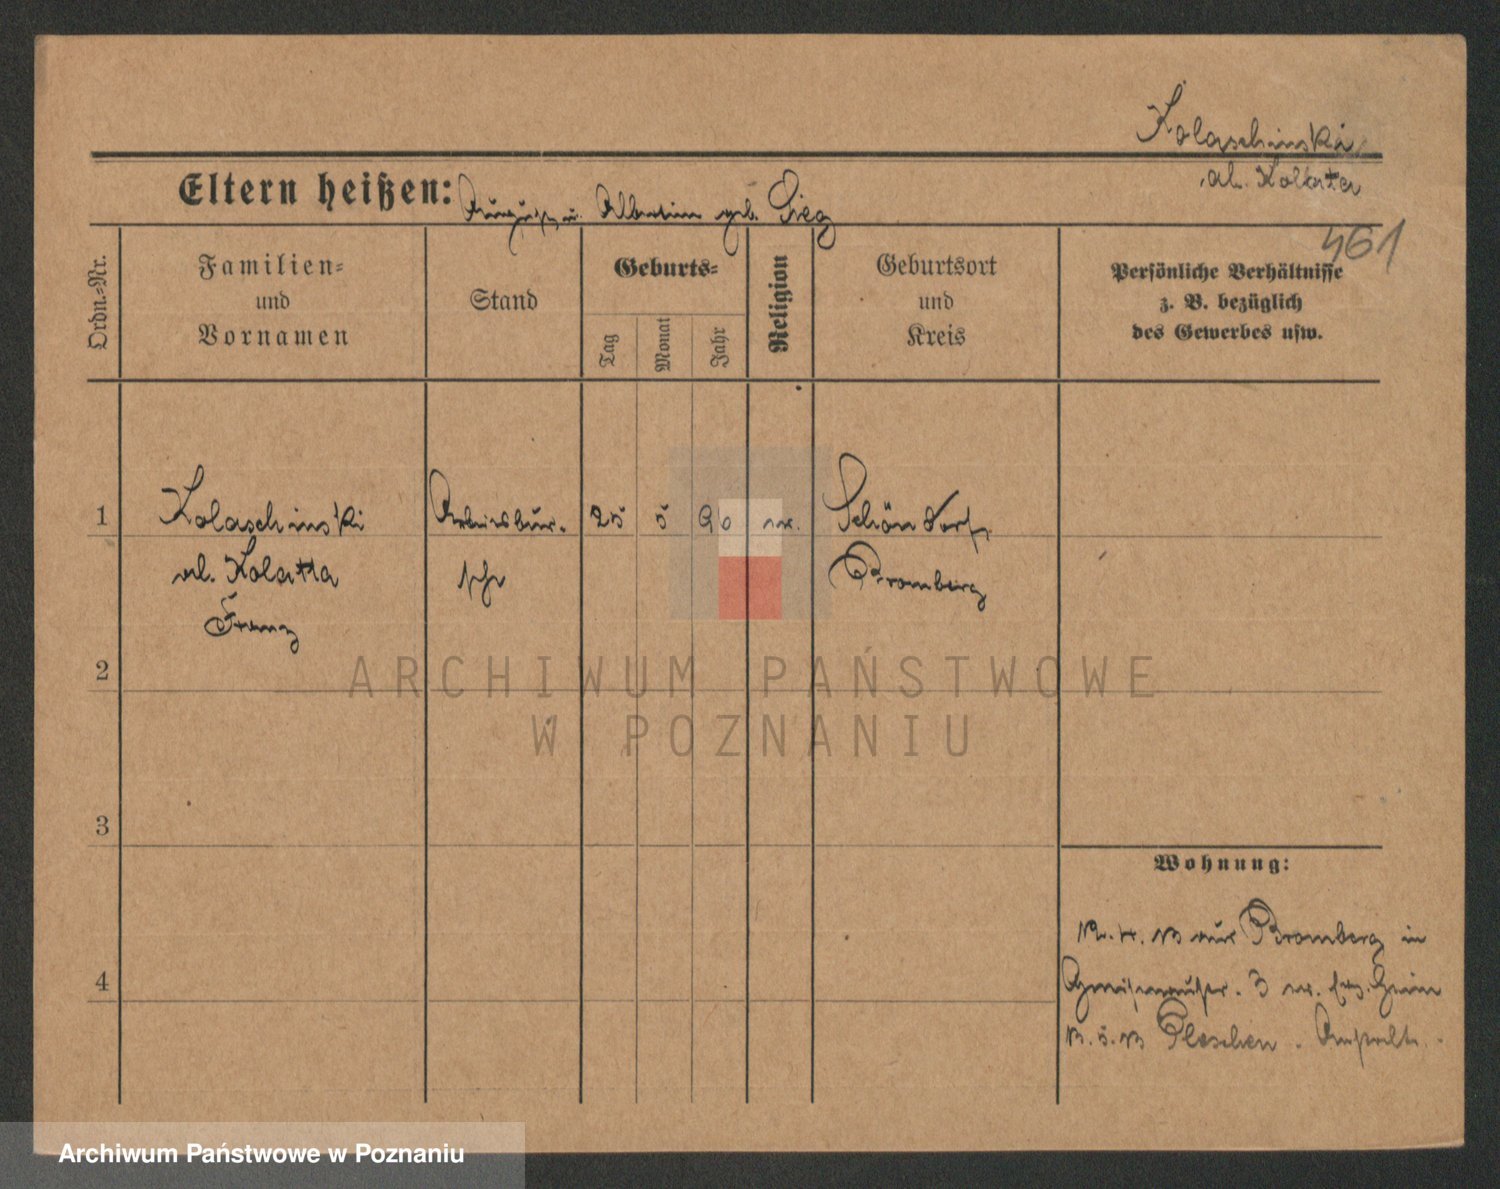 Kolaschinski
al. Kolatta
461
Eltern heißen: August u. Albertine geb. Sieg
Ordn.-Nr.
Familien-
und
Vornamen
Stand
Geburts-
Tag
Monat
Jahr
Religion
Geburtsort
und
Kreis
Persönliche Verhältnisse
z. B. bezüglich
des Gewerbes usw.
1
Kolaschinski
al. Kolatta
Franz
Arbeitsbur-
sche
25
5
90
ev.
Schöndorf
Bromberg
2
3
4
Wohnung:
aus Bromberg in
Gneisenaustr. 3
Pleschen
ARCHIWUM PAŃSTWOWE
W POZNANIU
Archiwum Państwowe w Poznaniu